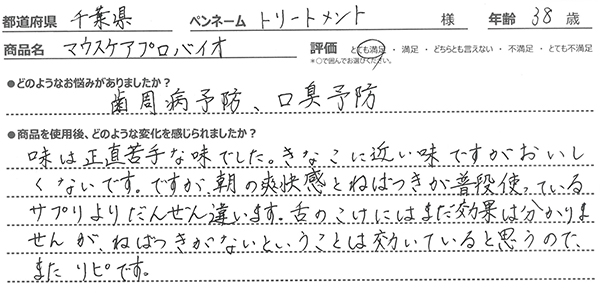 都道府県 千葉県 ペンネーム トリートメント 様 年齢 38 歳
商品名 マウスケアプロバイオ 評価 とても満足・満足・どちらとも言えない・不満足・とても不満足
*○で囲んでお選びください。
●どのようなお悩みがありましたか？
歯周病予防、口臭予防
●商品を使用後、どのような変化を感じられましたか？
味は正直苦手な味でした。きなこに近い味ですがおいし
くないです。ですが、朝の爽快感とねばつきが普段使っている
サプリよりだんぜん違います。舌のこけにはまだ効果は分かりま
せんが、ねばつきがないということは効いていると思うので、
またリピです。